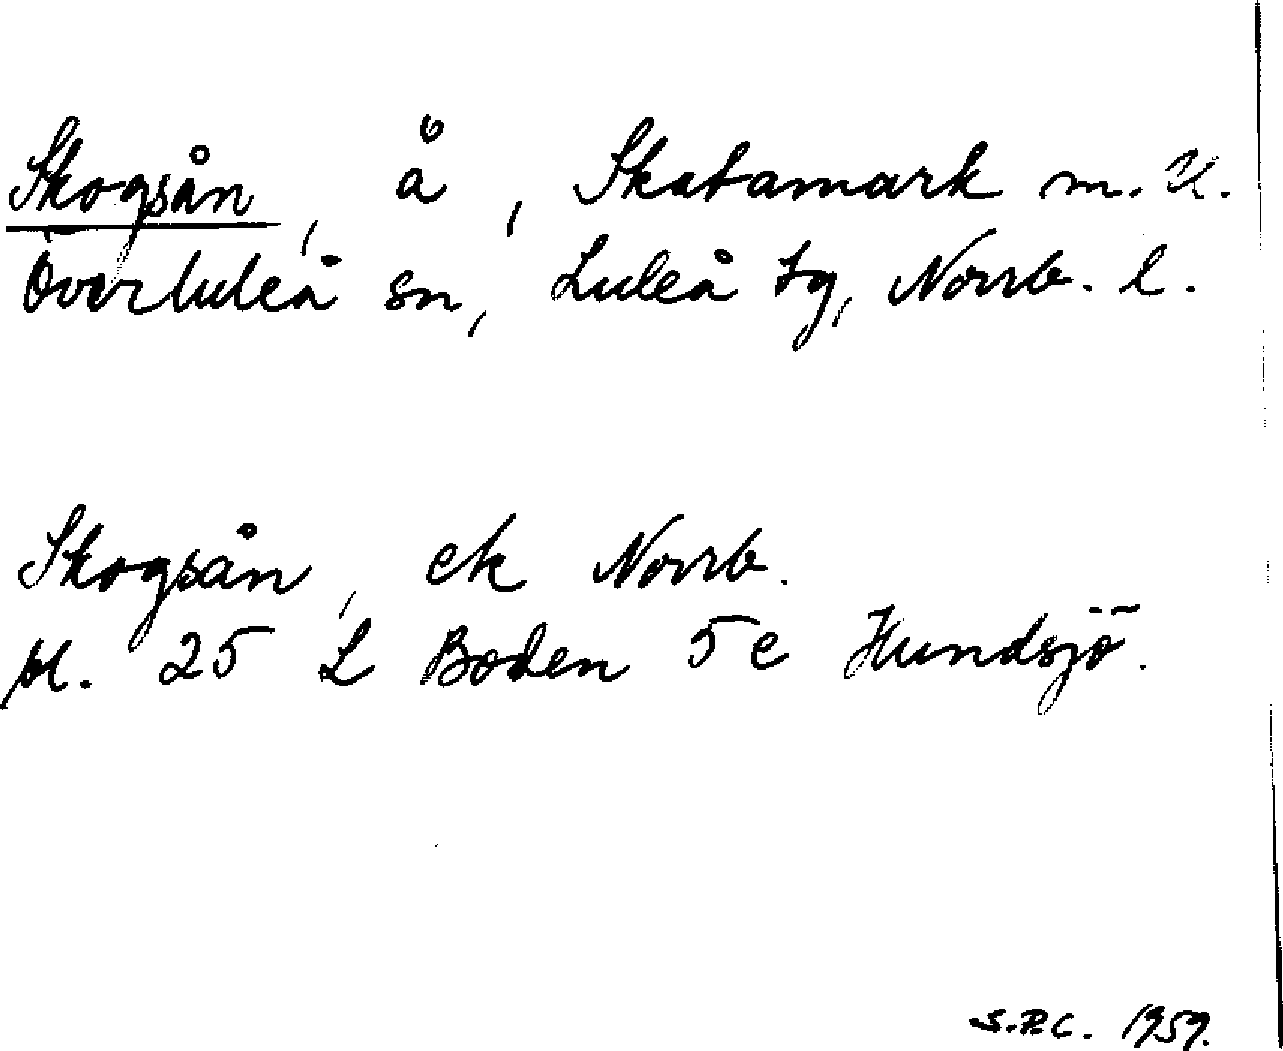 Skogsån, å, Skatamark m. fl.
Överluleå sn, Luleå tg, Norrb. l.
Skogsån, ek Norrb.
bl. 25 L Boden 5 e Hundsjö.
S.R.C. 1959.